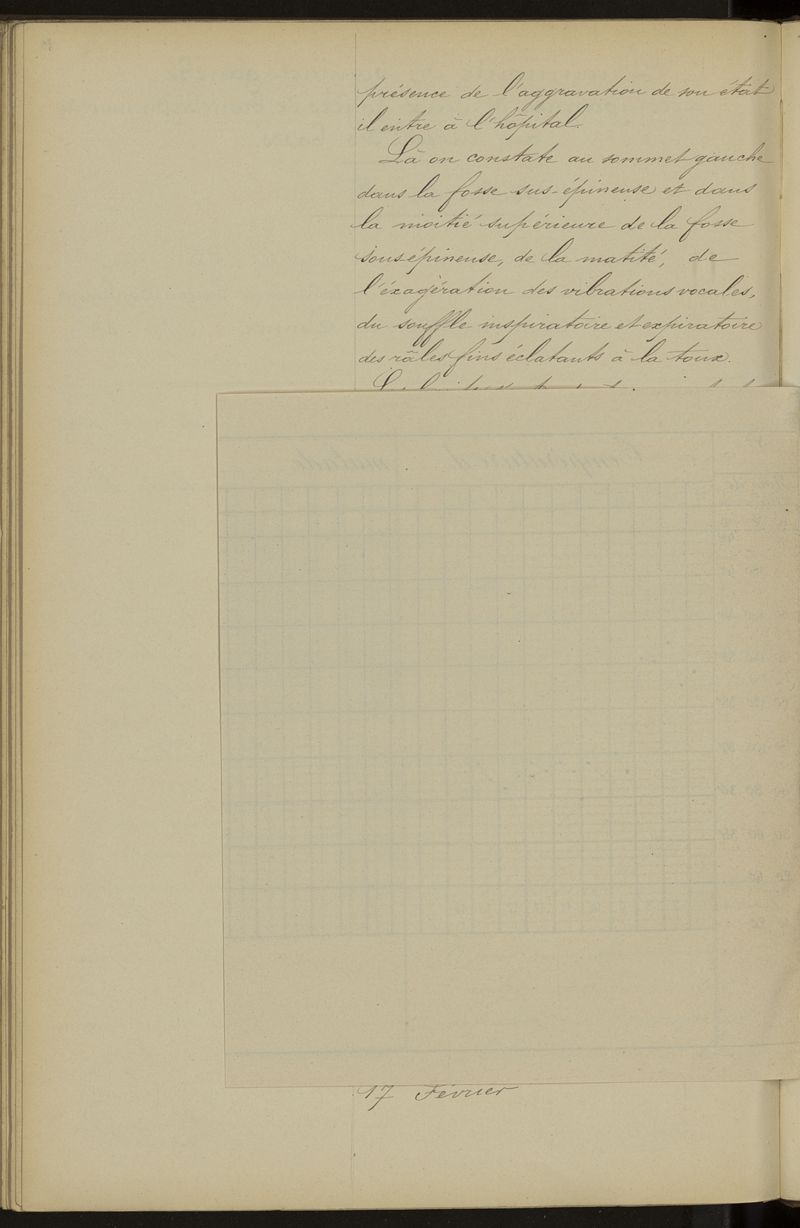 présence de l'aggravation de son état
il entre à l'hôpital.
Là on constate au sommet gauche
dans la fosse sus-épineuse et dans
la moitié supérieure de la fosse
sousépineuse, de la matité, de
l'éxagération des vibrations vocales,
du souffle inspiratoire et expiratoire
des râles fins éclatants à la toux.
17 Février